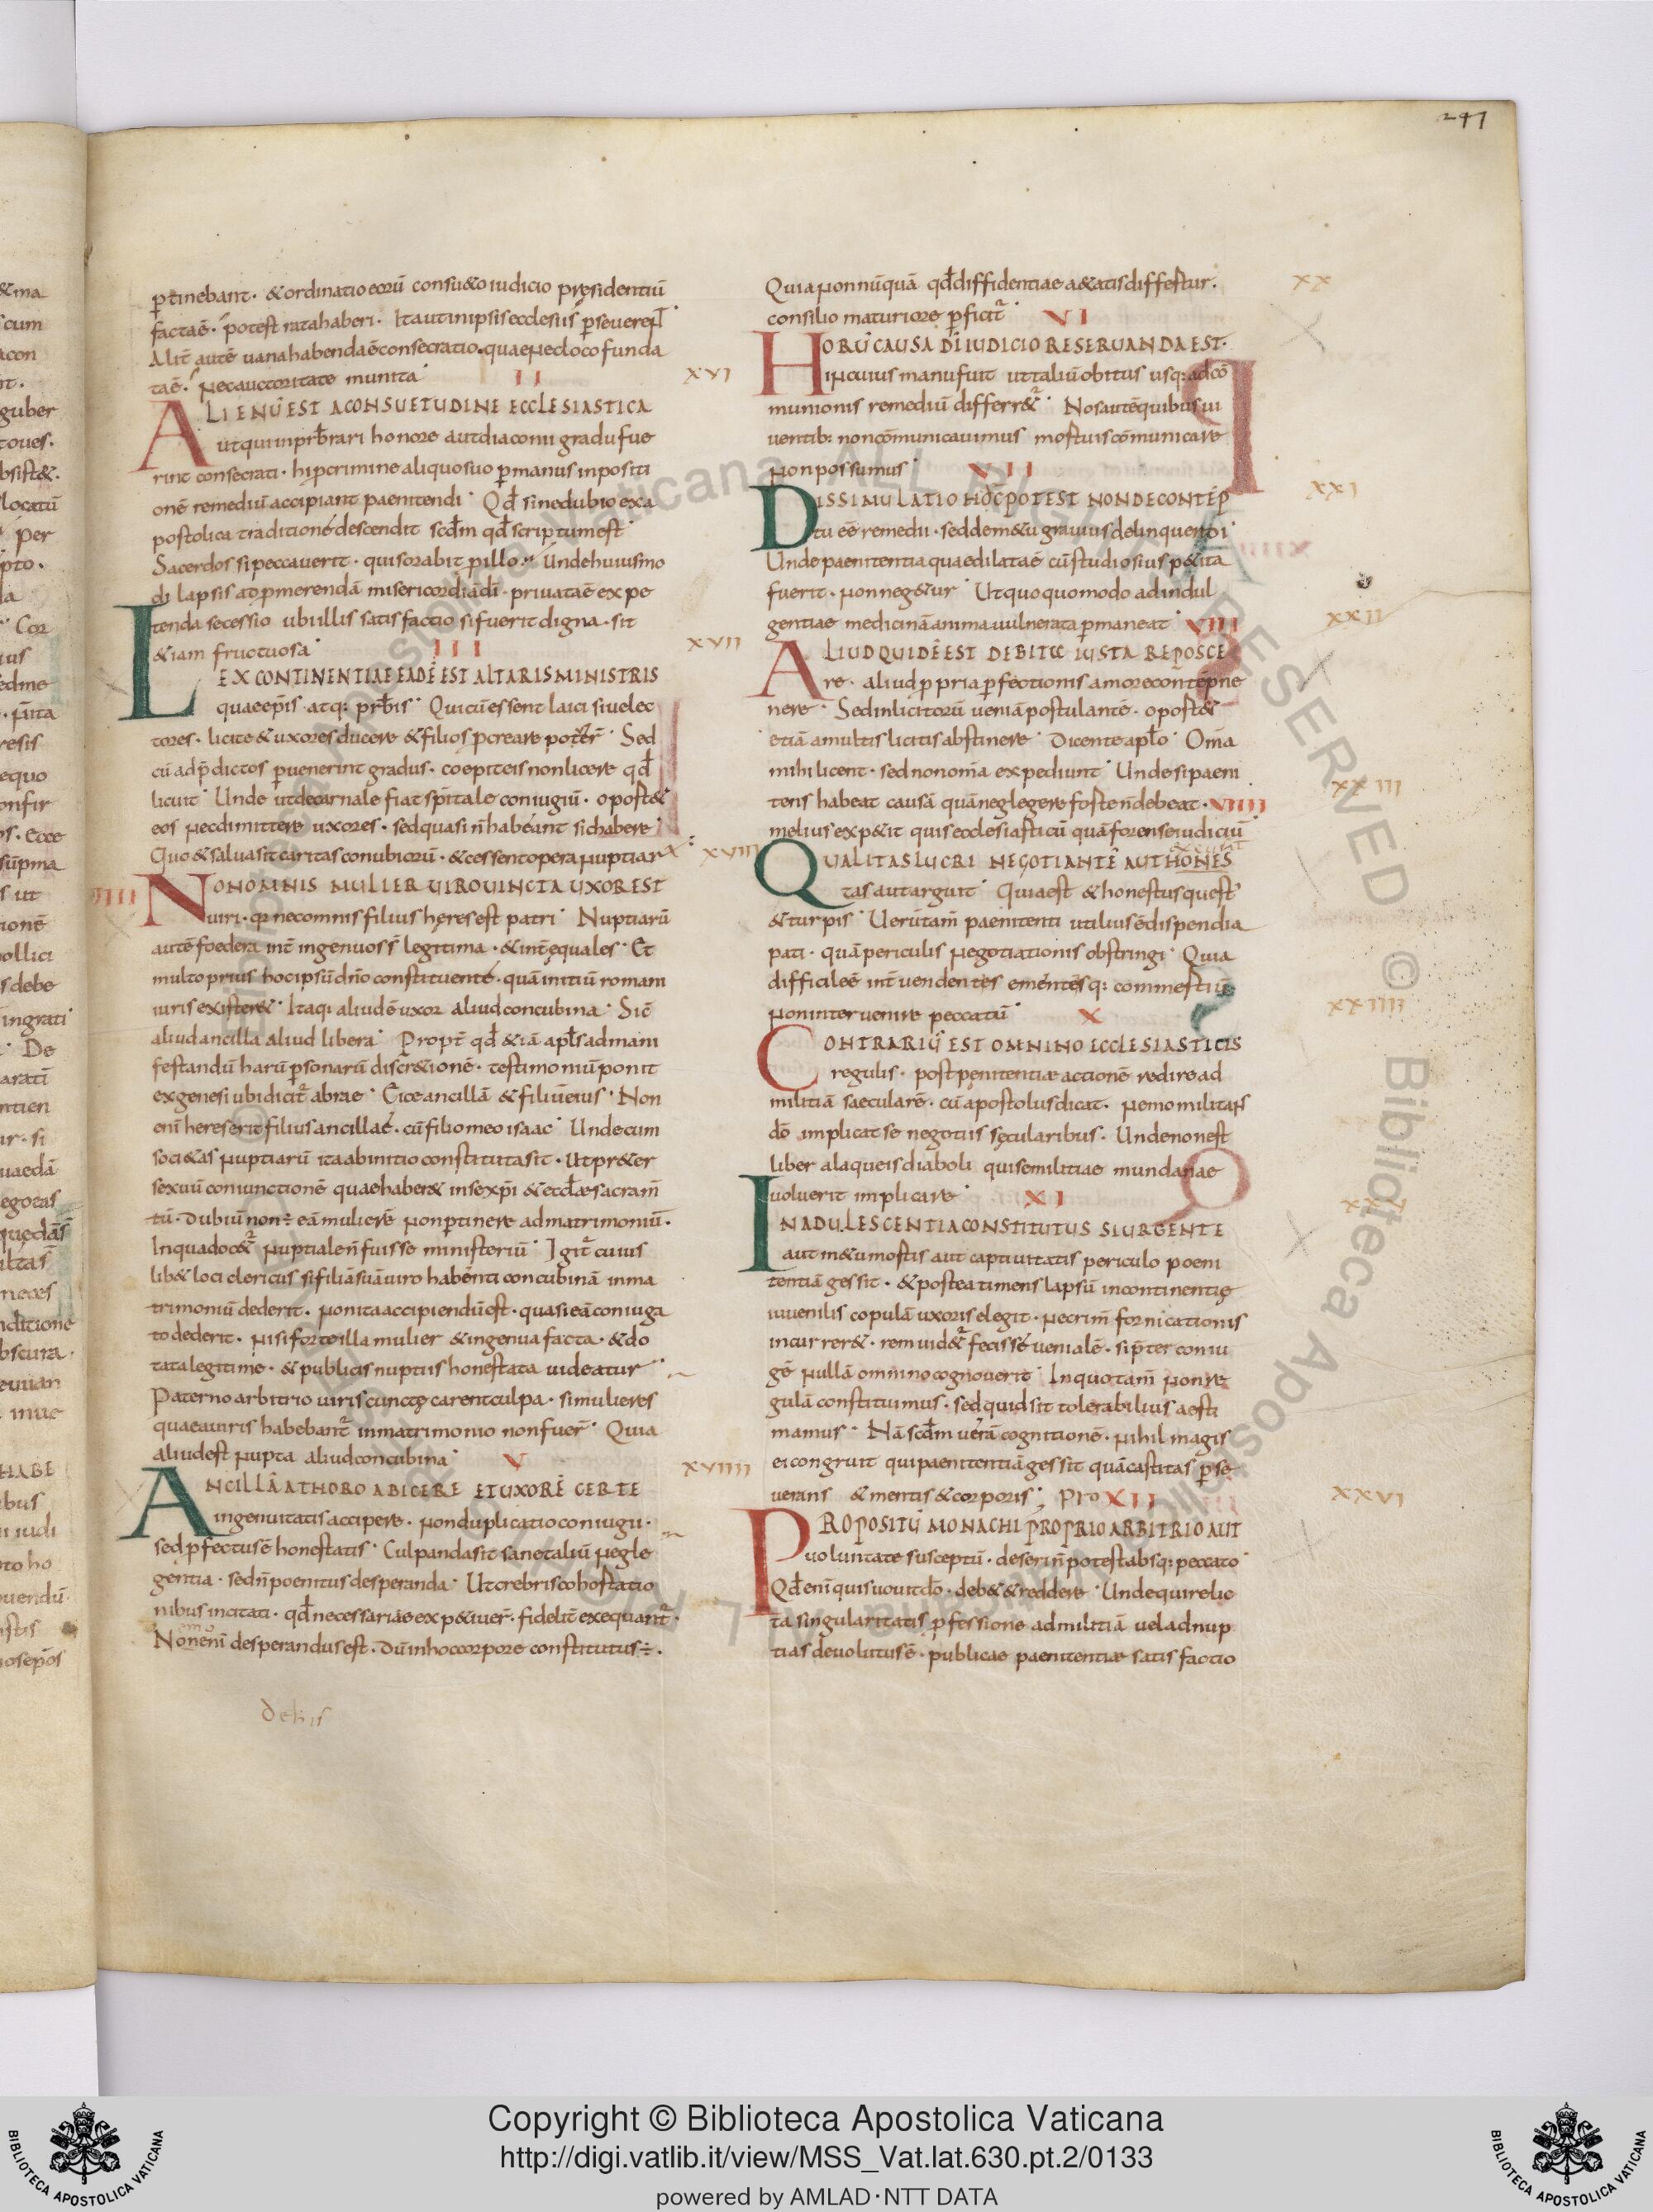 297
ptinebant. & ordinatio eorū consu&o iudicio presidentiū
factaē. potest rata haberi. Ita ut in ipsis ecclesiis pseveret
Alit autē vana habenda ē consecratio. quae nec loco funda
taē. nec auctoritate munita II
ALIENŪ EST A CONSUETUDINE ECCLESIASTICA XVI
ut qui in prbrari honore aut diaconii gradu fue
rint consecrati. hi p crimine aliquo suo p manus inpositi
onē remediū accipiant paenitendi. Qd sine dubio ex a
postolica traditionē descendit scdm qd scriptum est
Sacerdos si peccaverit. quis orabit p illo. Unde huiusmo
di lapsis ad pmerendā misericordiā di. privataē expe
tenda secessio ubi illis satisfactio si fuerit digna. sit
& iam fructuosa III XVII
LEX CONTINENTIAE EADĒ EST ALTARIS MINISTRIS
quae epis atq: prbis. Qui cū essent laici sive lec
tores. licite & uxores ducere & filios pcreare poter. Sed
cū ad pdictos pvenerint gradus. coepit eis non licere qd
licuit. Unde ut de carnale fiat spitale coniugiū. oport&
eos nec dimittere uxores. sed quasi n habeant sic habere
Quo & salva sit caritas conubiorū. & cessent opera nuptiar XVIII
IIII NON OMNIS MULIER VIRO VINCTA UXOR EST
viri. qr nec omnis filius heres est patri. Nuptiarū
autē foedera int ingenuos s legitima. & int equales. Et
multo prius hoc ipsū dno constituente. quā initiū romani
iuris exister&. Itaq: aliud ē uxor aliud concubina. Sic
aliud ancilla aliud libera. Propt qd & iā apls ad mani
festandū harū psonarū discr&ionē. testimoniū ponit
ex genesi ubi dicit abrae. Eice ancillā & filiū eius. Non
eni heres erit filius ancillae. cū filio meo isaac. Unde cum
soci&as nuptiarū ita ab initio constituta sit. Ut pr&er
sexuū coniunctionē quae haber& in se xpi & eccłae sacram
tū. dubiū non ÷ eā mulierē non ptinere ad matrimoniū.
In qua doc& nuptiale n fuisse ministeriū. Igit cuius
lib& loci clericus si filiā suā viro habenti concubinā in ma
trimoniū dederit. non ita accipiendū est. quasi eā coniuga
to dederit. nisi forte illa mulier & ingenua facta. & do
tata legitime. & publicis nuptiis honestata videatur
Paterno arbitrio viris cuncte carent culpa. si mulieres
quae a viris habebant in matrimonio non fuer. Quia
aliud est nupta aliud concubina V XVIIII
ANCILLĀ A THORO ABICERE ET UXORĒ CERTE
ingenuitatis accipere. non duplicatio coniugii.
sed pfectus ē honestatis. Culpanda sit sane taliū negle
gentia. sed n poenitus desperanda. Ut crebris cohortatio
nibus incitati. qd necessariae exp&iver. fidelit exequant.
Non eni desperandus est. dū in hoc corpore constitutus ÷.
Quia nonnūquā qd diffidentiae a&atis differtur. XX
consilio maturiore pficit VI
HORŪ CAUSA DI IUDICIO RESERVANDA EST.
in cuius manu fuit ut taliū obitus usq: ad cō
munionis remediū differr&. Nos autē quibus vi
ventib: non cōmunicavimus mortuis cōmunicare
non possumus VII XXI
DISSIMULATIO HOC POTEST NON DE CONTĒP
tu eē remedii. sed de m&u gravius delinquendi
Unde paenitentia quae dilataē cū studiosius p&ita
fuerit. non neg&ur. Ut quo quomodo ad indul
gentiae medicinā anima vulnerata pmaneat VIII XXII
ALIUD QUIDĒ EST DEBITU IUSTA REPOSCE
re. aliud ppria pfectionis amore contēpne
nere. Sed inlicitorū veniā postulantē. oport&
etiā a multis licitis abstinere. Dicente aplo. Oma
mihi licent. sed non oma expediunt. Unde si paeni XXIII
tens habeat causā quā neglegere forte n debeat. VIIII
melius exp&it quis ecclesiasticū quā forense iudiciū
QUALITAS LUCRI NEGOTIANTĒ AUT HONES
tas aut arguit. Quia est & honestus quest
& turpis. Verūtam paenitenti utilius ē dispendia
pati. quā periculis negotiationis obstringi. Quia
difficile ē int vendentes ementesq: commertiū XXIIII
non intervenire peccatū X
CONTRARIŪ EST OMNINO ECCLESIASTICIS
regulis. post penitentiae actionē redire ad
militiā saecularē. cū apostolus dicat. nemo militans
dō implicat se negotiis secularibus. Unde non est
liber a laqueis diaboli qui se militiae mundanae
voluerit implicare XI XXV
IN ADULESCENTIA CONSTITUTUS SI URGENTE
aut m&u mortis aut captivitatis periculo poeni
tentiā gessit. & postea timens lapsū incontinentię
iuvenilis copulā uxoris elegit. ne crim fornicationis
incurrer&. rem vid& fecisse venialē. si pter coniu
gē nullā omnino cognoverit. In quo tam non re
gulā constituimus. sed quid sit tolerabilius aesti
mamus. Nā scdm verā cognitionē. nihil magis
ei congruit qui paenitentiā gessit quā castitas pse
verans & mentis & corporis; Pro XII XXVI
PROPOSITŪ MONACHI PROPRIO ARBITRIO AUT
voluntate susceptū. deseri n potest absq: peccato
Qd eni quis vovit dō. deb& & reddere. Unde qui relic
ta singularitatis pfessione ad militiā vel ad nup
tias devolutus ē. publicae paenitentiae satisfactio
Copyright © Biblioteca Apostolica Vaticana
http://digi.vatlib.it/view/MSS_Vat.lat.630.pt.2/0133
powered by AMLAD·NTT DATA
BIBLIOTECA APOSTOLICA VATICANA
BIBLIOTECA APOSTOLICA VATICANA